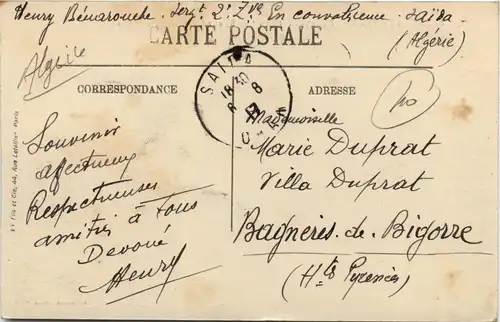 Henry Bénarouche. Sergt 2e Zves En convalescence. Saïda
CARTE POSTALE
(Algérie)
Algérie
SAIDA
18 30
8
ORAN
CORRESPONDANCE
ADRESSE
Souvenir
affectueux
Respectueuses
amitiés à Tous
Devoué
Henry
Mademoiselle
Marie Duprat
Villa Duprat
Bagnères-de-Bigorre
(Htes Pyrénées)
Fils et Cie, 44, Rue Letellier - Paris